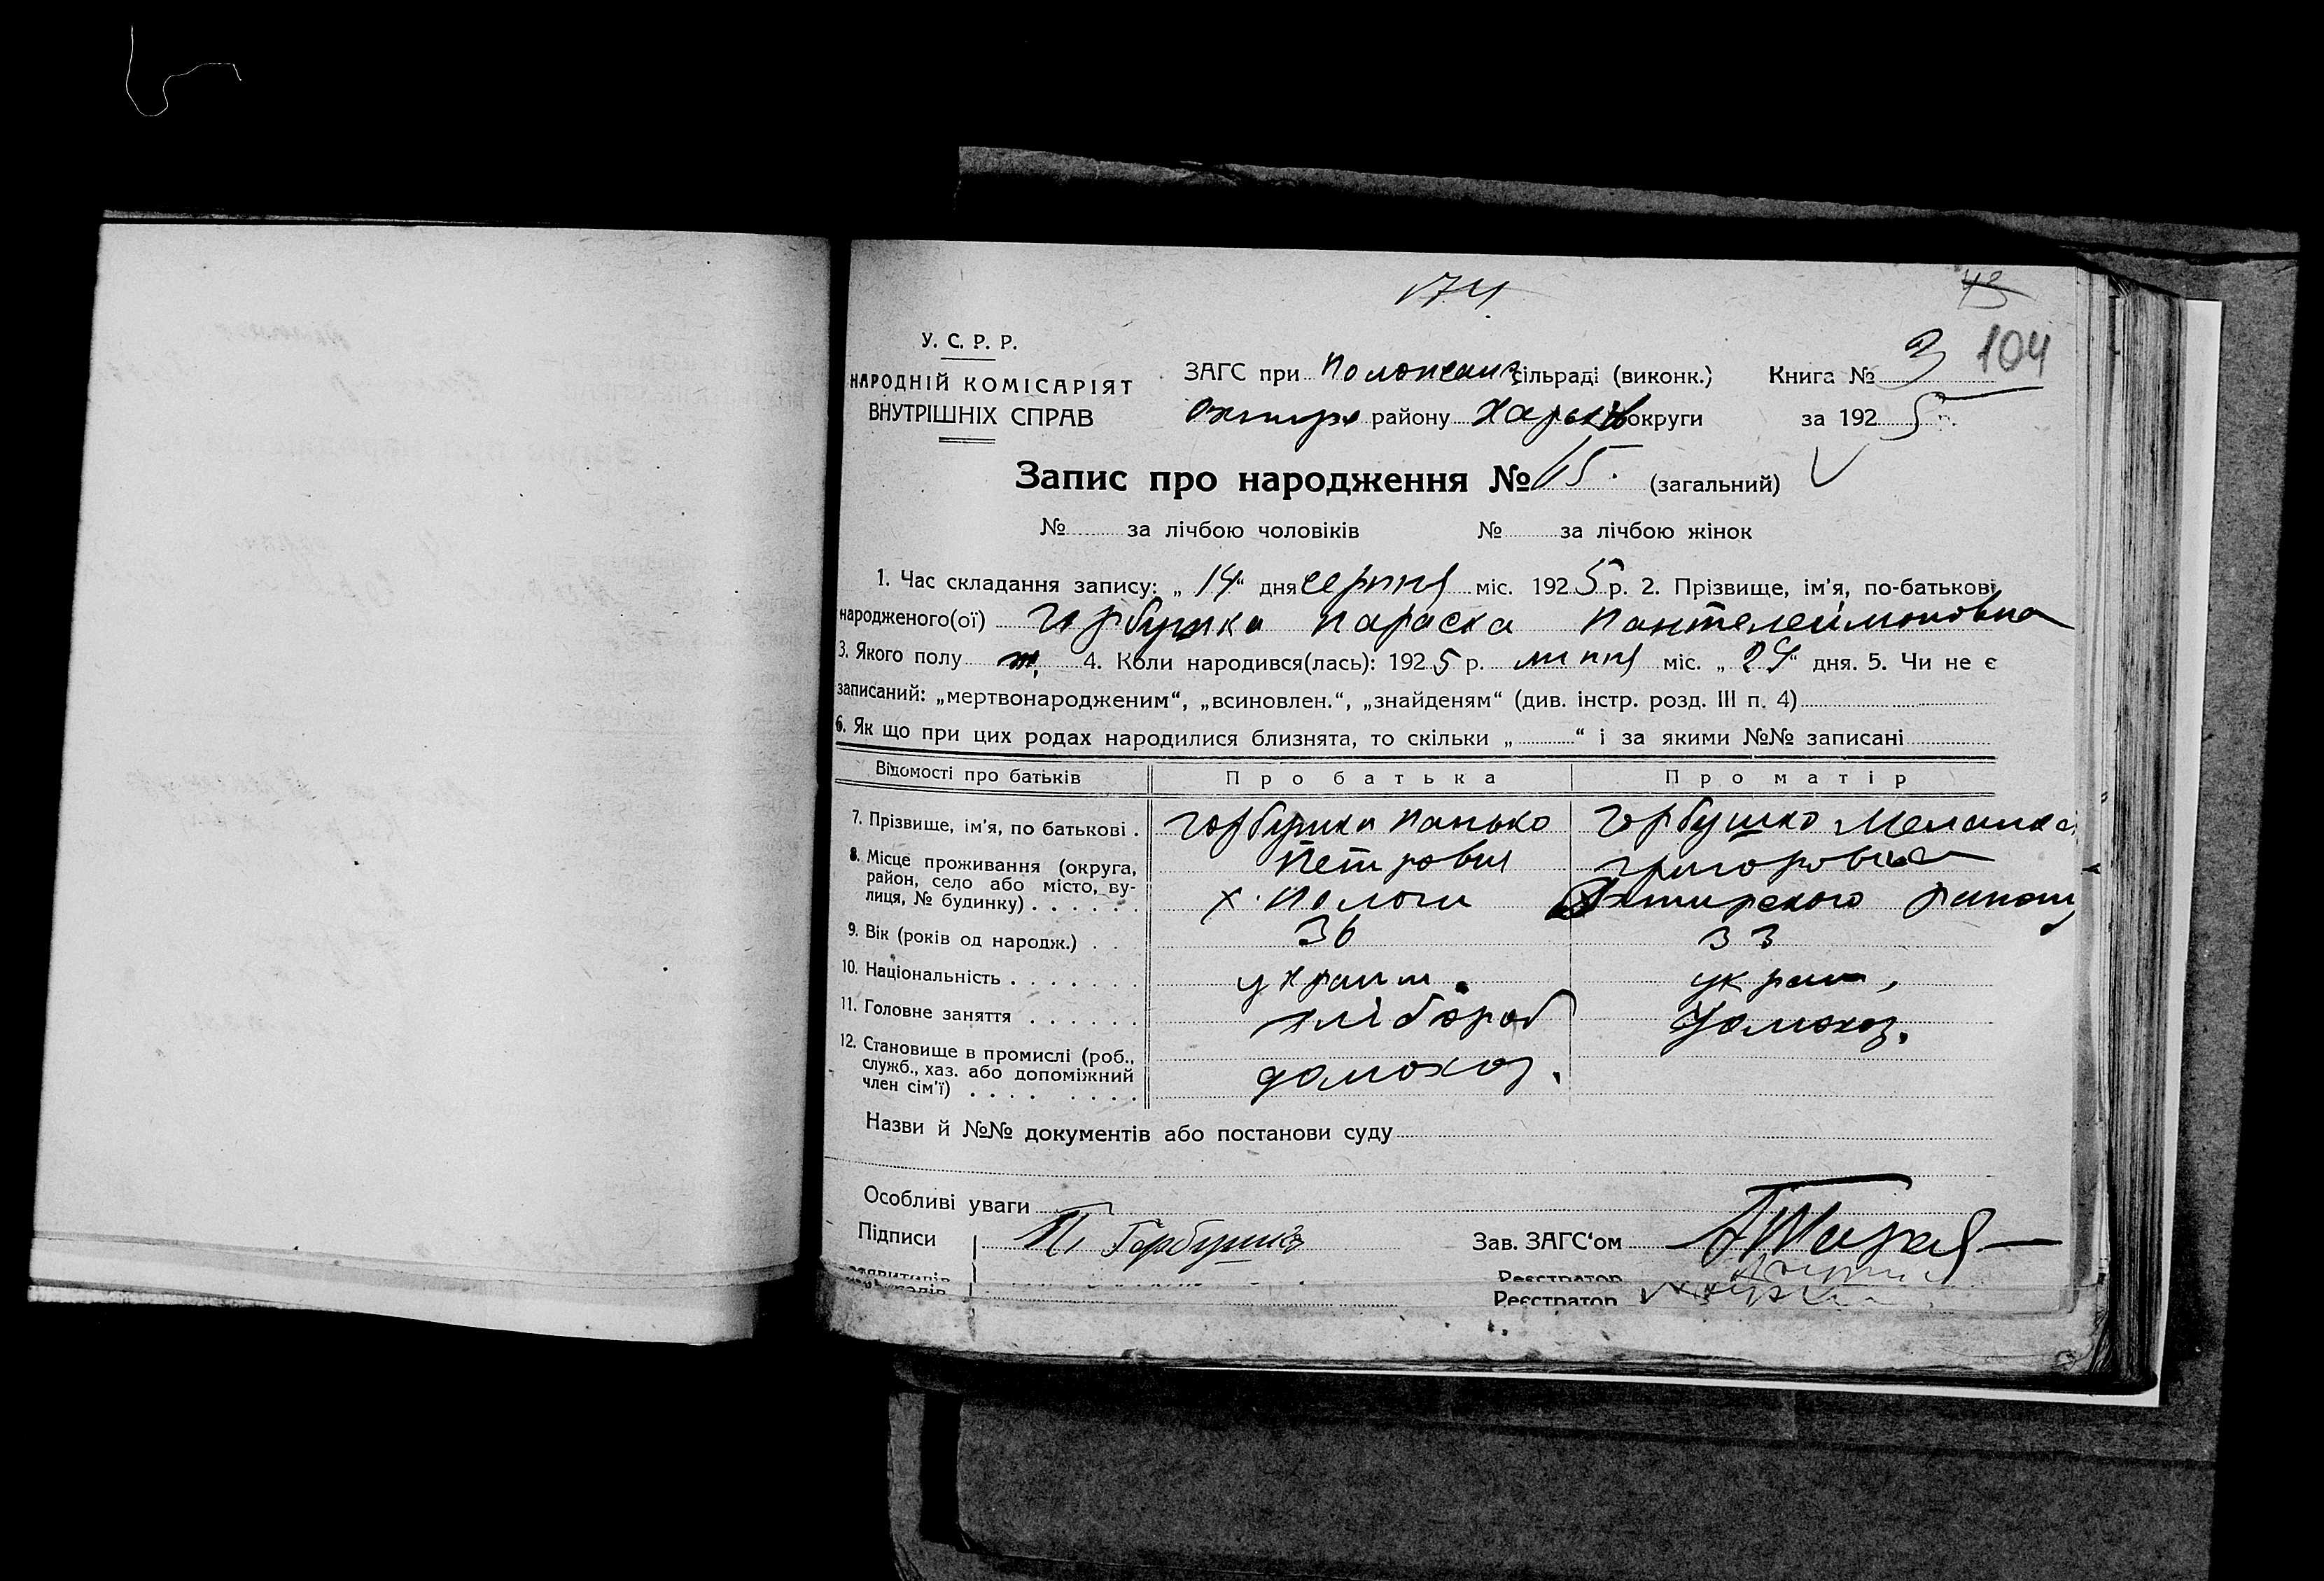 174
43
104
У. С. Р. Р.
НАРОДНІЙ КОМІСАРІЯТ
ВНУТРІШНІХ СПРАВ
ЗАГС при сільраді (виконк.) Книга № 3
району Харьків округи за 1925 р.
Запис про народження № 15. (загальний)
№ за лічбою чоловіків № за лічбою жінок
1. Час складання запису: „14“ дня серпня міс. 1925 р. 2. Прізвище, ім'я, по-батькові
народженого(ої) Горбушка Параска Пантелеймоновна
3. Якого полу ж. 4. Коли народився(лась): 1925 р. липня міс. „29“ дня. 5. Чи не є
записаний: „мертвонародженим“, „всиновлен.“, „знайденям“ (див. інстр. розд. III п. 4)
6. Як що при цих родах народилися близнята, то скільки „ “ і за якими №№ записані
Відомості про батьків Про батька Про матір
7. Прізвище, ім'я, по батькові . Горбушка Панько Горбушко Меланка
Петрович Григоровна
8. Місце проживання (округа,
район, село або місто, ву-
лиця, № будинку) . . . . . . х. Пологи Охтирского району
9. Вік (років од народж.) . . 36 33
10. Національність . . . . . . . украин. украи,
11. Головне заняття . . . . . . хлібороб домохоз.
12. Становище в промислі (роб.,
служб., хаз. або допоміжний
член сім'ї) . . . . . . . . домохоз.
Назви й №№ документів або постанови суду
Особливі уваги
Підписи П. Горбушка Зав. ЗАГС'ом
Реєстратор
Реєстратор